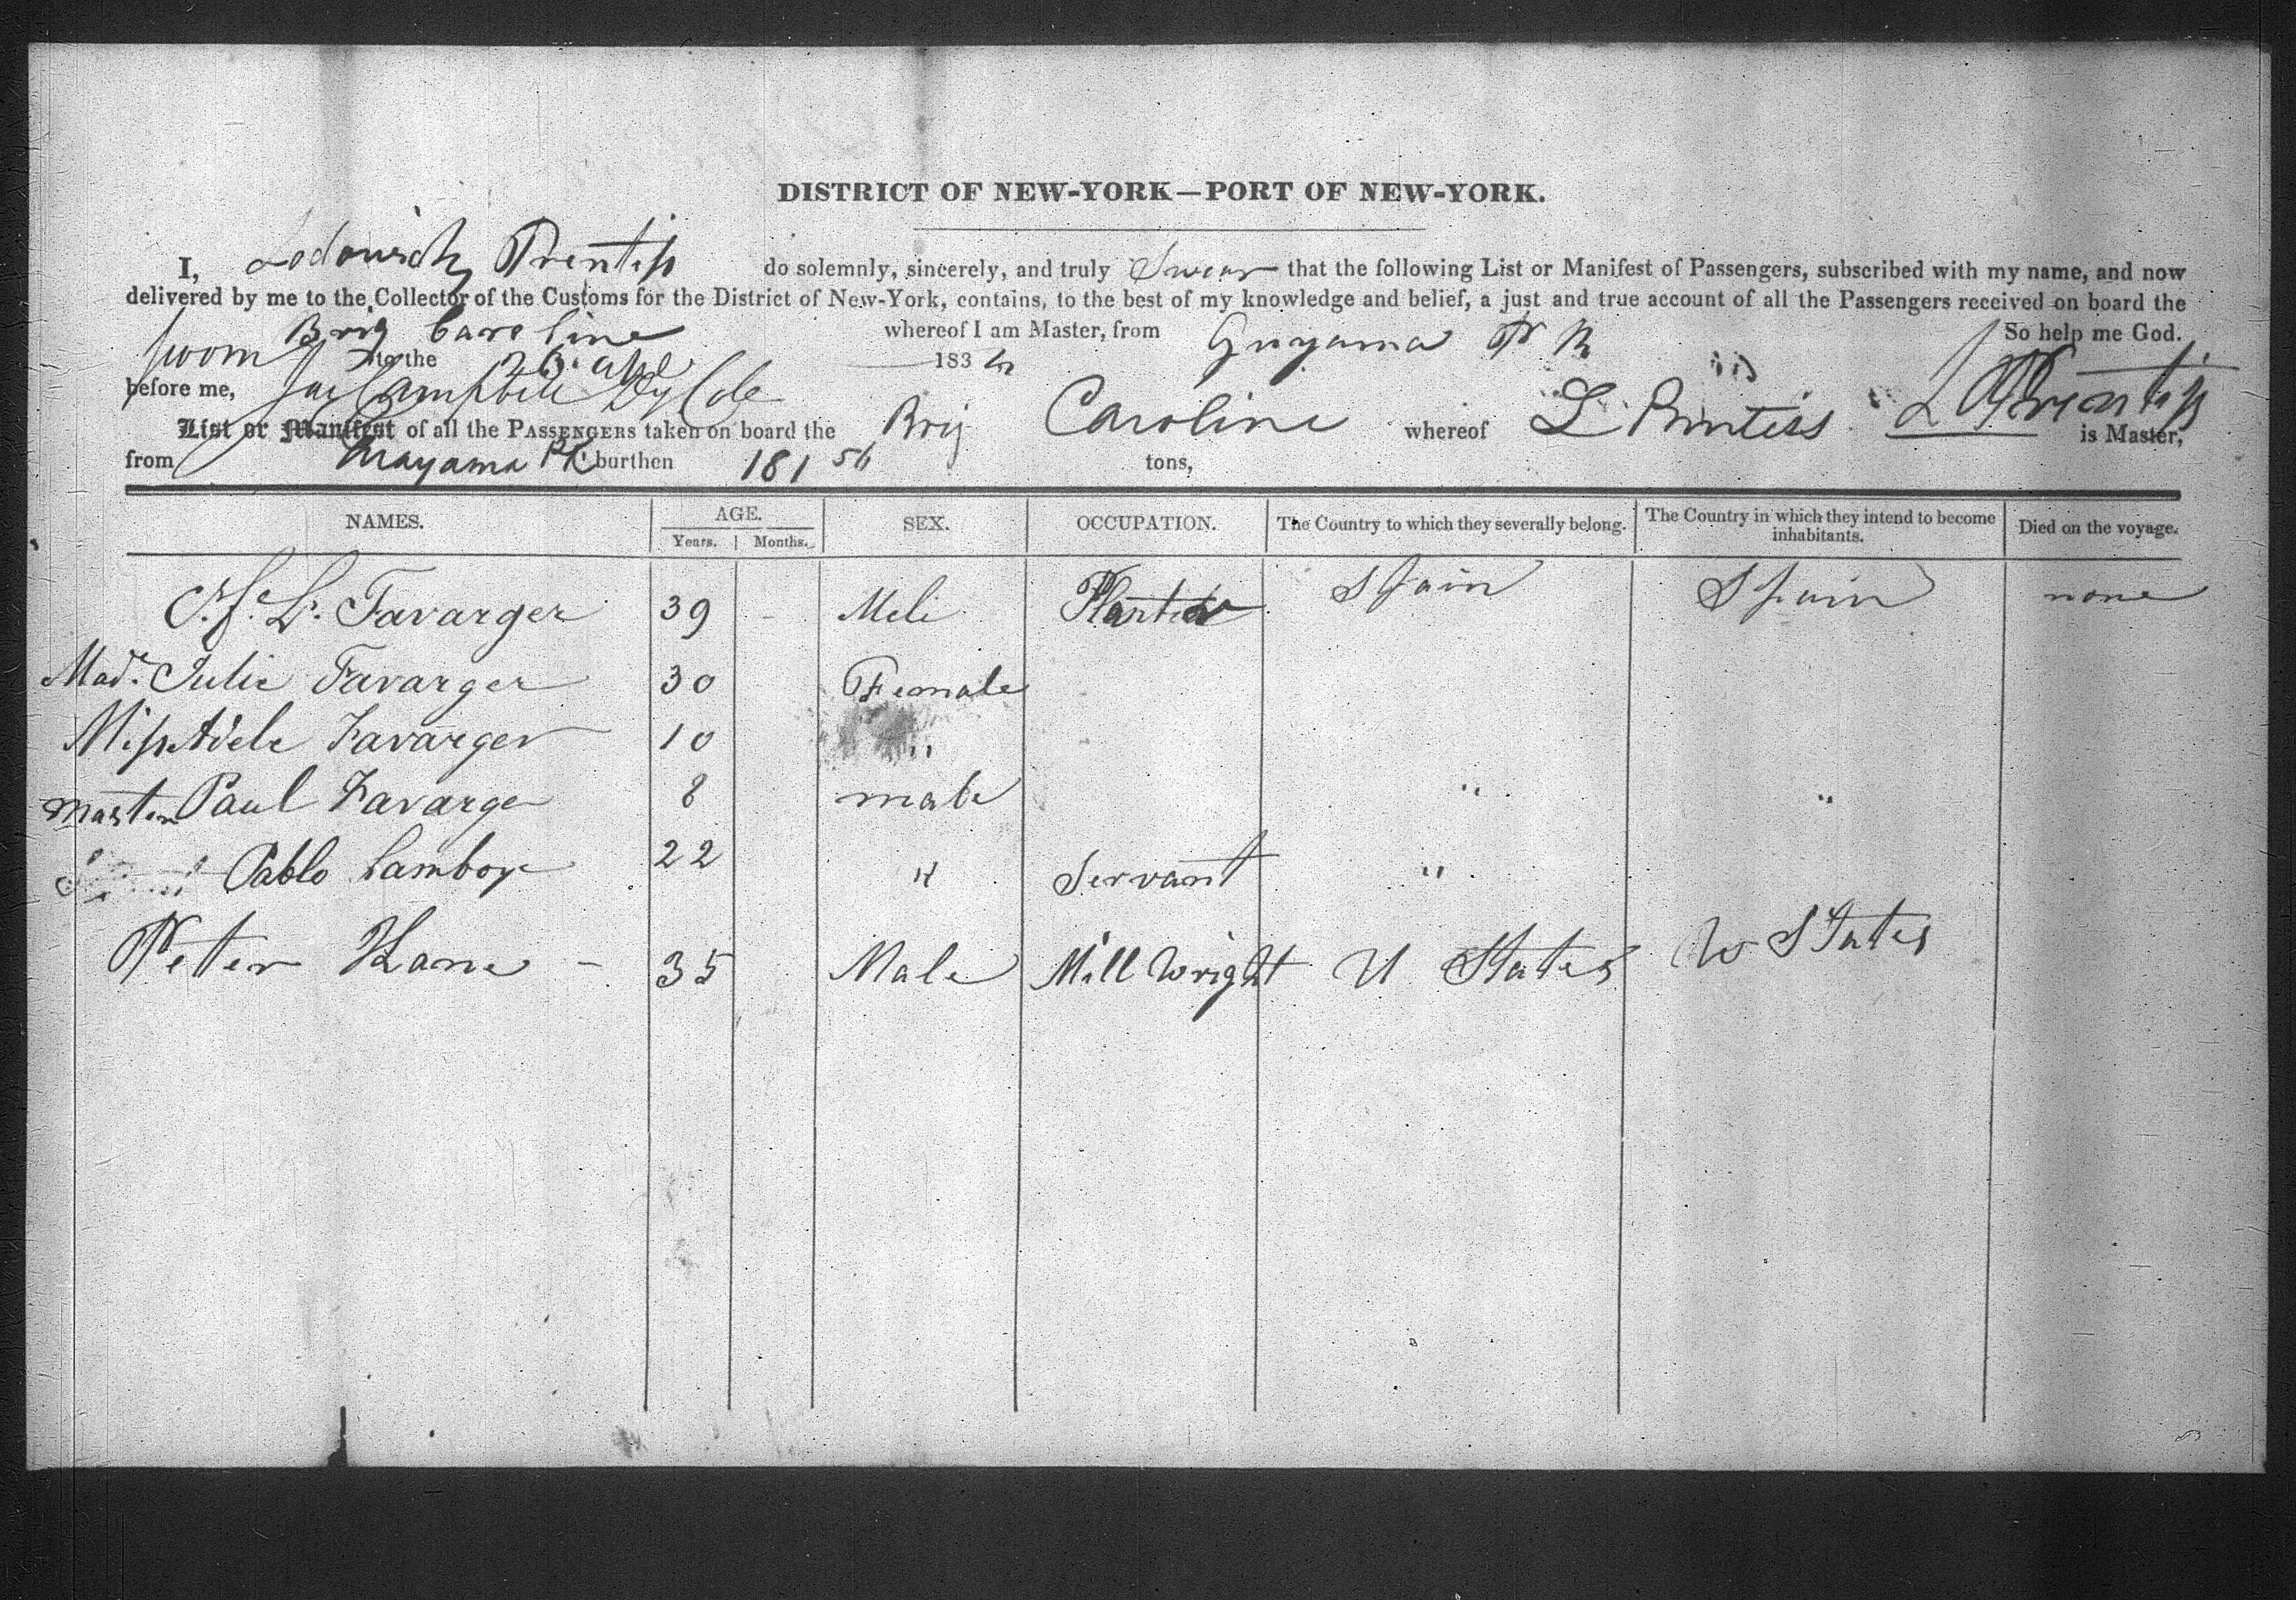 DISTRICT OF NEW-YORK—PORT OF NEW-YORK.
I, Lodowick Prentiss do solemnly, sincerely, and truly Swear that the following List or Manifest of Passengers, subscribed with my name, and now
delivered by me to the Collector of the Customs for the District of New-York, contains, to the best of my knowledge and belief, a just and true account of all the Passengers received on board the
Brig Caroline whereof I am Master, from Guyama P R So help me God.
Sworn to the 26 183
before me, Campbell Dy Col L Prentiss
List or Manifest of all the PASSENGERS taken on board the Brig Caroline whereof L Printiss is Master,
from Guayama PR burthen 181 56 tons,
NAMES. AGE. SEX. OCCUPATION. The Country to which they severally belong. The Country in which they intend to become inhabitants. Died on the voyage.
Years. Months.
Favarger 39 - Male Planter Spain Spain none
Made. Julie Favarger 30 Female
Miss Adele Favarger 10 "
Master Paul Favarger 8 male " "
Pablo Lamboy 22 " Servant "
Peter Kane - 35 Male Mill Wright U States U States